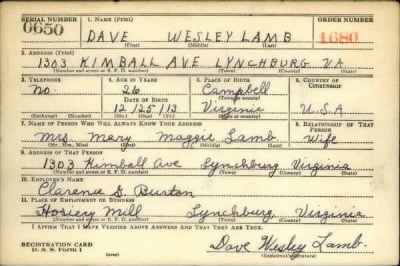 SERIAL NUMBER 1. NAME (Print) ORDER NUMBER
0650 DAVE WESLEY LAMB 1680
(First) (Middle) (Last)
2. ADDRESS (Print)
1303 KIMBALL AVE LYNCHBURG VA
(Number and street or R. F. D. number) (Town) (County) (State)
3. TELEPHONE 4. AGE IN YEARS 5. PLACE OF BIRTH 6. COUNTRY OF CITIZENSHIP
No. 26 Campbell
(Town or county)
DATE OF BIRTH
12 / 25 / 13 Virginia U.S.A
(Exchange) (Number) (Mo.) (Day) (Yr.) (State or country)
7. NAME OF PERSON WHO WILL ALWAYS KNOW YOUR ADDRESS 8. RELATIONSHIP OF THAT PERSON
Mrs. Mary Maggie Lamb Wife
(Mr., Mrs., Miss) (First) (Middle) (Last)
9. ADDRESS OF THAT PERSON
1303 Kimball Ave Lynchburg Virginia
(Number and street or R. F. D. number) (Town) (County) (State)
10. EMPLOYER'S NAME
Clarence G. Burton
11. PLACE OF EMPLOYMENT OR BUSINESS
Hosiery Mill Lynchburg, Virginia
(Number and street or R. F. D. number) (Town) (County) (State)
I AFFIRM THAT I HAVE VERIFIED ABOVE ANSWERS AND THAT THEY ARE TRUE.
REGISTRATION CARD
D. S. S. Form 1
Dave Wesley Lamb.
(Registrant's signature)